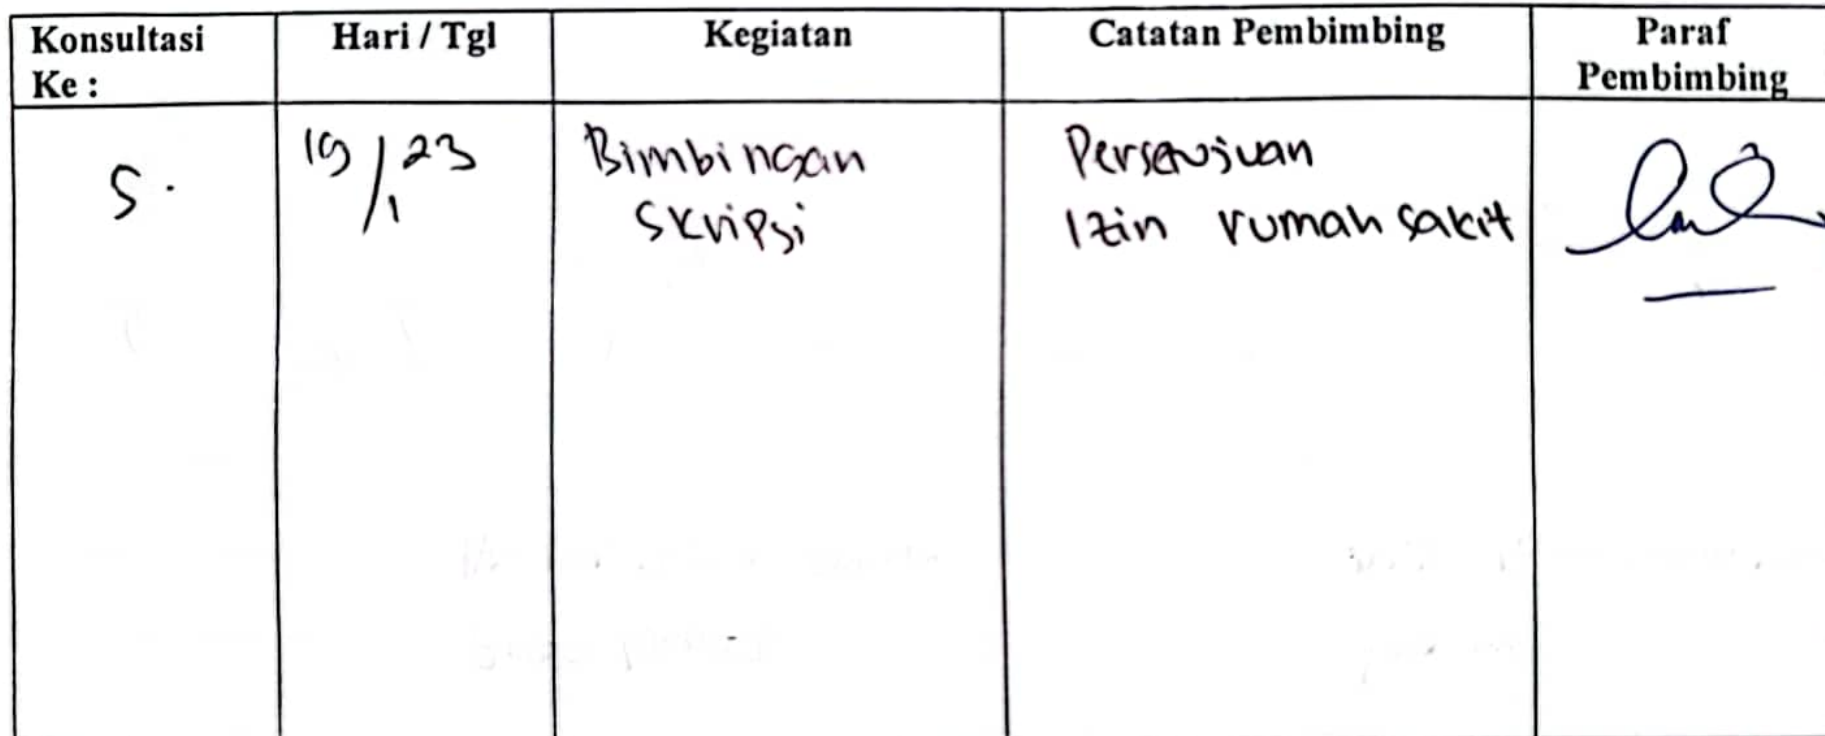 Konsultasi Ke :
Hari / Tgl
Kegiatan
Catatan Pembimbing
Paraf Pembimbing
5.
19/1 23
Bimbingan
Skripsi
Persetujuan
Izin rumah sakit